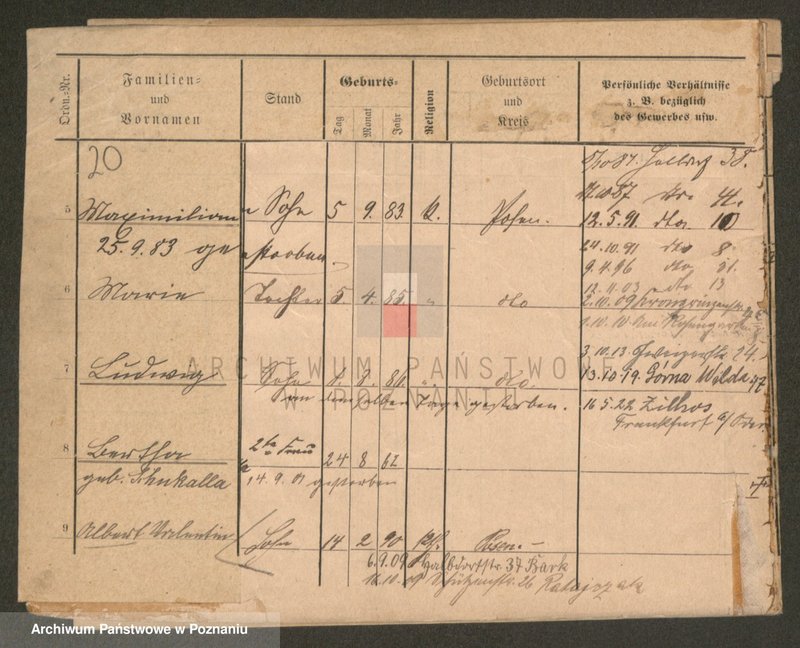 Ordn.-Nr.
Familien-
und
Vornamen
Stand
Geburts-
Tag
Monat
Jahr
Religion
Geburtsort
und
Kreis
Persönliche Verhältnisse
z. B. bezüglich
des Gewerbes usw.
20
38.
5 Maximilian Sohn 5 9. 83. k. Posen.
12.5.91. dto 10
25.9.83 gestorben
24.10.91 dto 8.
9.4.96 dto 21.
12.11.03 dto 13
6 Marie Tochter 5. 4. 85. " dto
2.10.09 Kronprinzenstr.
1.10.10
3.10.13. 24.
7 Ludwig Sohn 1. 8. 86. " dto
13.10.19. Górna Wilda 47
An demselben Tage gestorben.
16.5.22 Zilhos
Frankfurt a/Oder
8 Bertha 2te Frau 24 8 62
geb. 14.9.01 gestorben
9 Albert Valentin Sohn 14 2 90 kth. Posen.
6.9.09 Halbdorfstr. 37 Bark
10.09 Schützenstr. 26 Ratajczak
ARCHIWUM PAŃSTWOWE
W POZNANIU
Archiwum Państwowe w Poznaniu